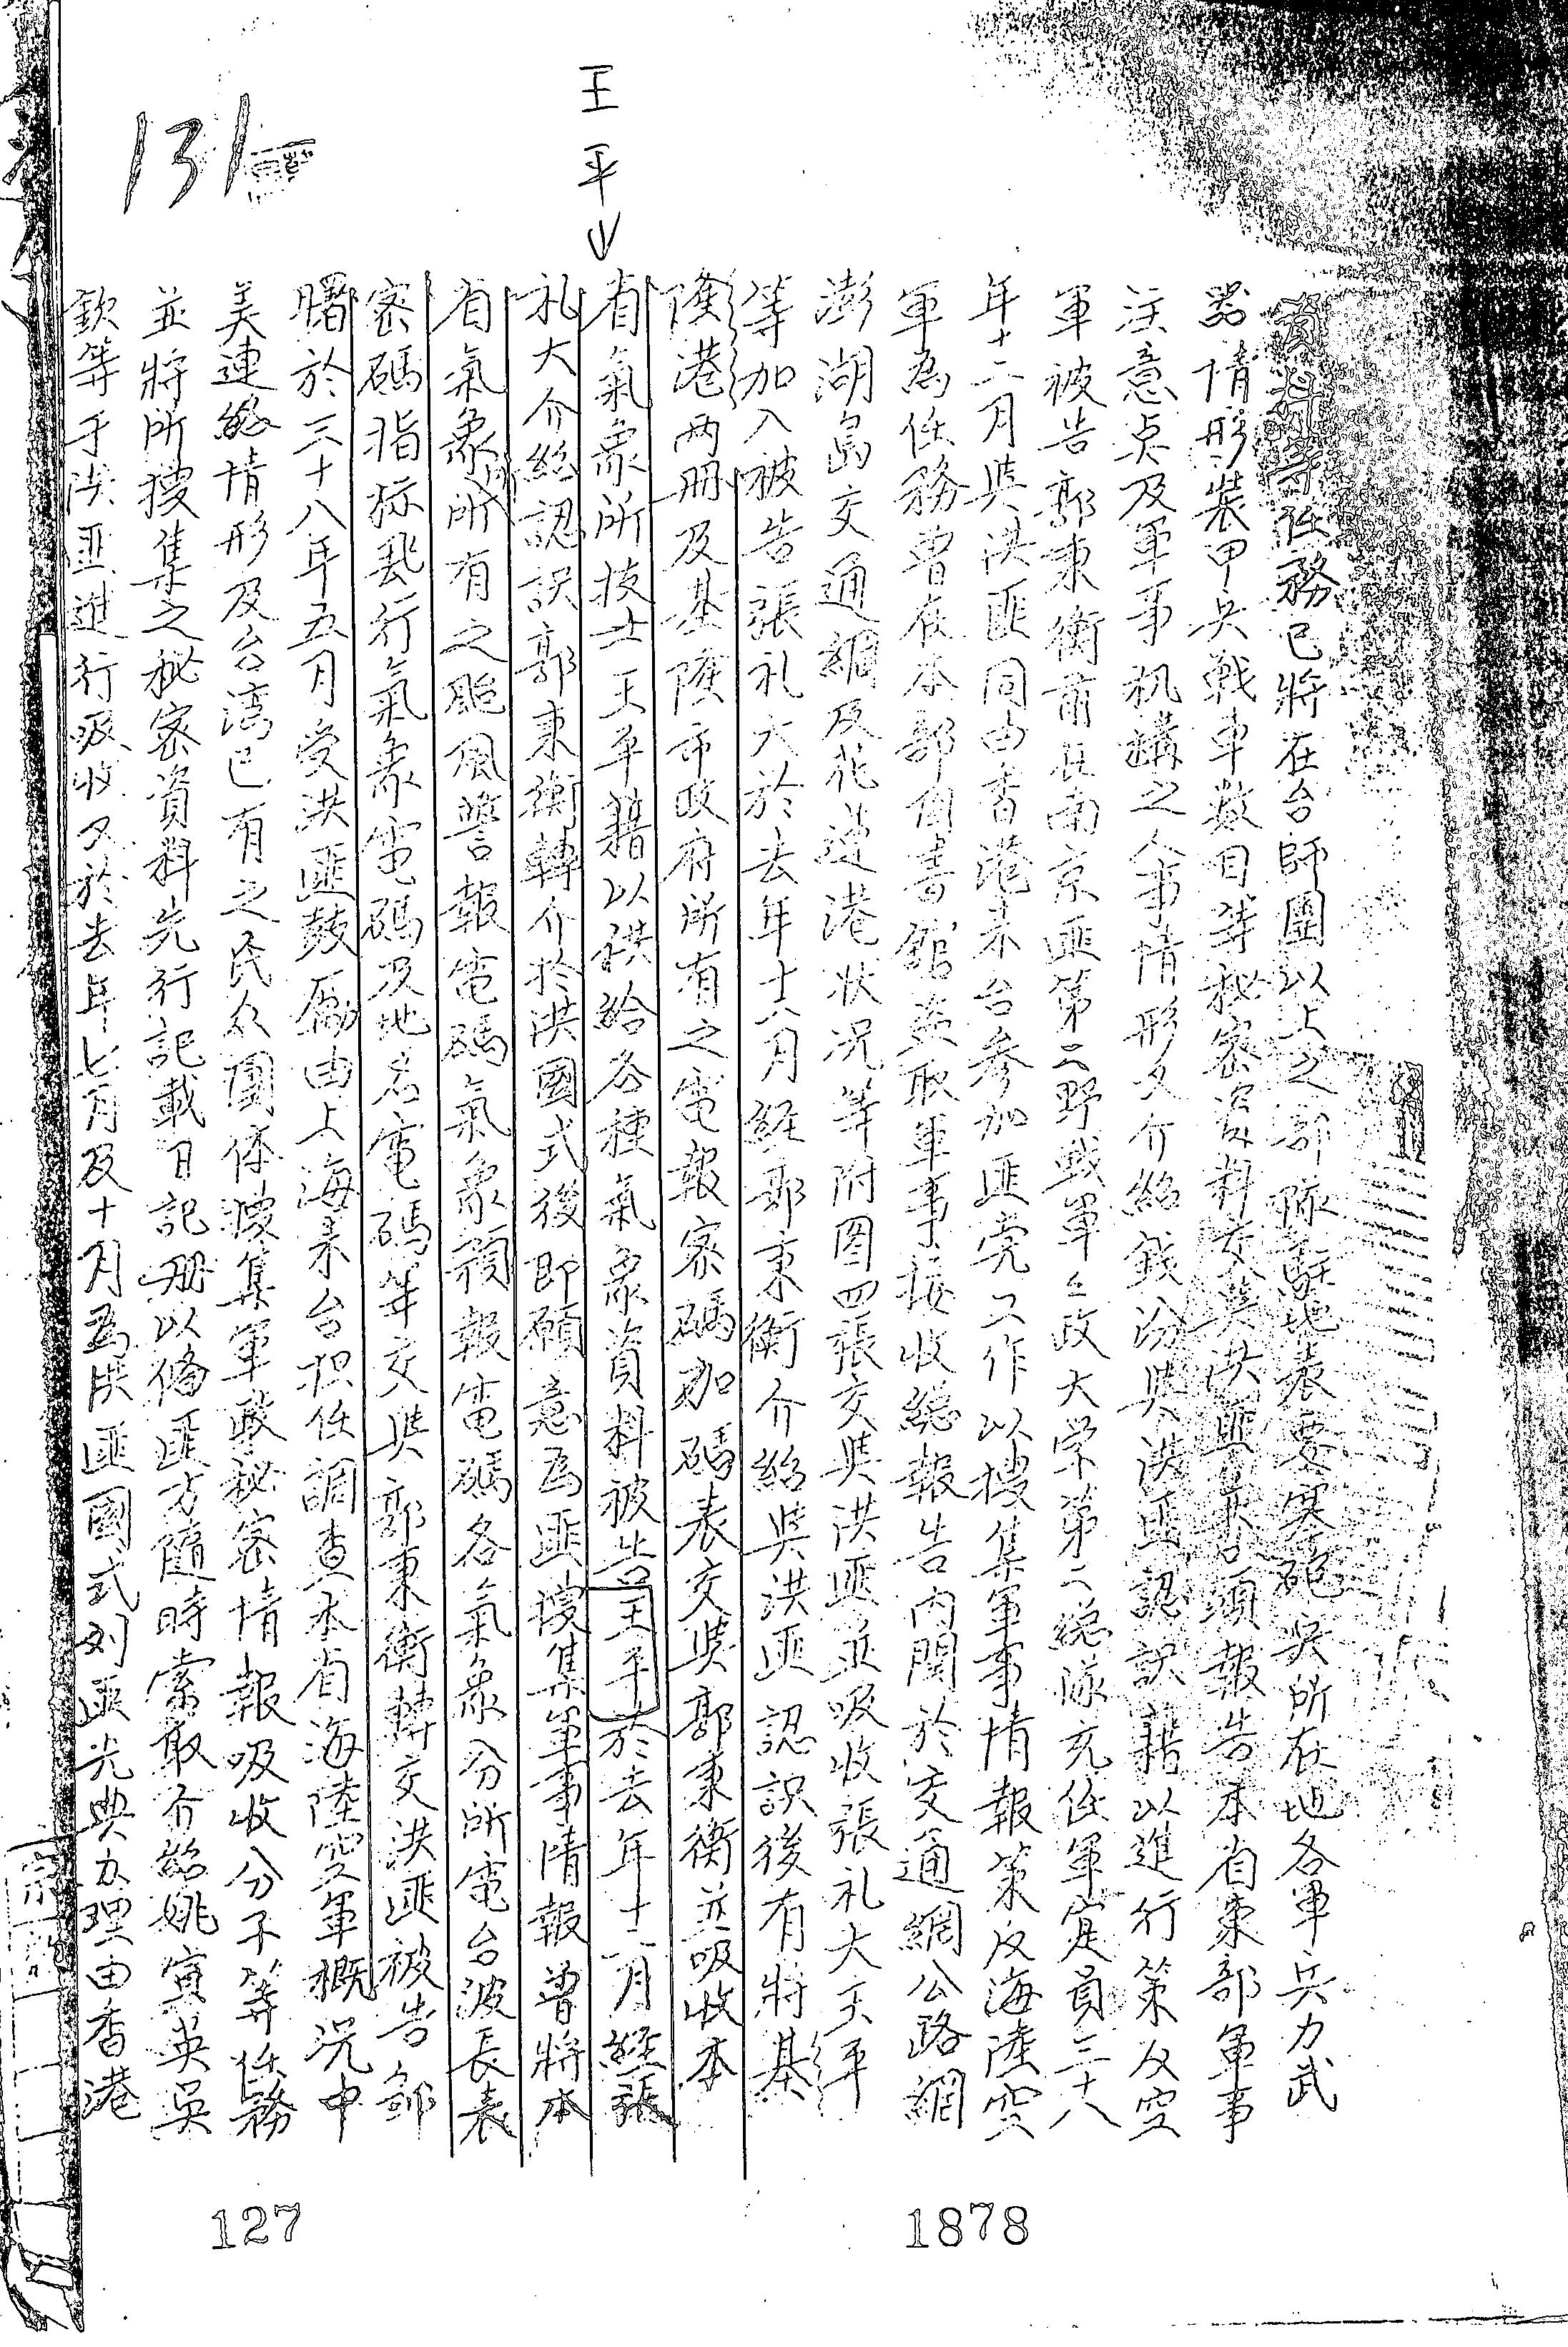 王平
131
資料等任務已將在台師團以上之部隊駐地表要塞砲台所在地各軍兵力武
器情形裝甲兵战車数目等秘密資料交與洪匪並口頭報告本省東部軍事
注意点及軍事机構之人事情形又介紹錢汾與洪匪認識藉以進行策反空
軍被告郭秉衡前在南京匪第二野战軍々政大学第二總隊充任軍官員三十八
年十二月與洪匪同由香港来台参加匪党工作以搜集軍事情報策反海陸空
軍為任務曽在本部圖書館盗取軍事接收總報告内関於交通網公路網
澎湖島交通網及花蓮港状况等附图四張交與洪匪並吸收張礼大王平
等加入被告張礼大於去年十一月経郭秉衡介紹與洪匪認識後有將基
隆港两冊及基隆市政府所有之電報密碼加碼表交與郭秉衡並吸收本
省氣象所技士王平藉以供給各種氣象資料被告王平於去年十二月經張
礼大介紹認識郭秉衡轉介於洪國式後即願意為匪搜集軍事情報曽將本
省氣象所所有之颱風警報電碼氣象預報電碼各氣象分所電台波長表
密碼指标飛行氣象電碼及地名電碼等交與郭秉衡轉交洪匪被告鄭
曙於三十八年五月受洪匪鼓励由上海来台担任調查本省海陸空軍概况中
美連絡情形及台湾已有之民众團体搜集軍政秘密情報吸收分子等任務
並將所搜集之秘密資料先行記載日記冊以俻匪方隨時索取介紹姚寅英吳
欽等予洪匪進行吸收又於去年七月及十月為洪匪國式刘匪光典办理由香港
127
1878